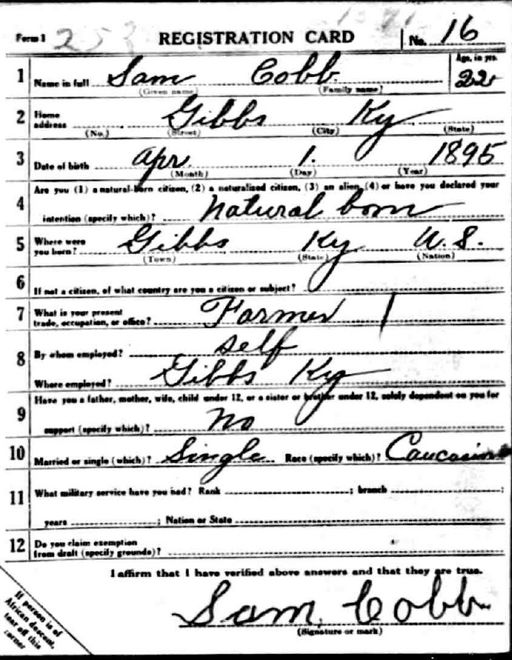 Form 1 REGISTRATION CARD No. 16
Age, in yrs.
1 Name in full Sam Cobb 22
(Given name) (Family name)
2 Home address Gibbs Ky
(No.) (Street) (City) (State)
3 Date of birth Apr 1. 1895
(Month) (Day) (Year)
Are you (1) a natural-born citizen, (2) a naturalized citizen, (3) an alien, (4) or have you declared your
4 intention (specify which)? Natural born
5 Where were you born? Gibbs Ky U.S.
(Town) (State) (Nation)
6 If not a citizen, of what country are you a citizen or subject?
7 What is your present trade, occupation, or office? Farmer
8 By whom employed? self
Where employed? Gibbs Ky
Have you a father, mother, wife, child under 12, or a sister or brother under 12, solely dependent on you for
9 support (specify which)? No
10 Married or single (which)? Single Race (specify which)? Caucasian
11 What military service have you had? Rank ; branch ;
years ; Nation or State
12 Do you claim exemption from draft (specify grounds)?
I affirm that I have verified above answers and that they are true.
Sam Cobb
(Signature or mark)
If person is of
African descent,
tear off this
corner